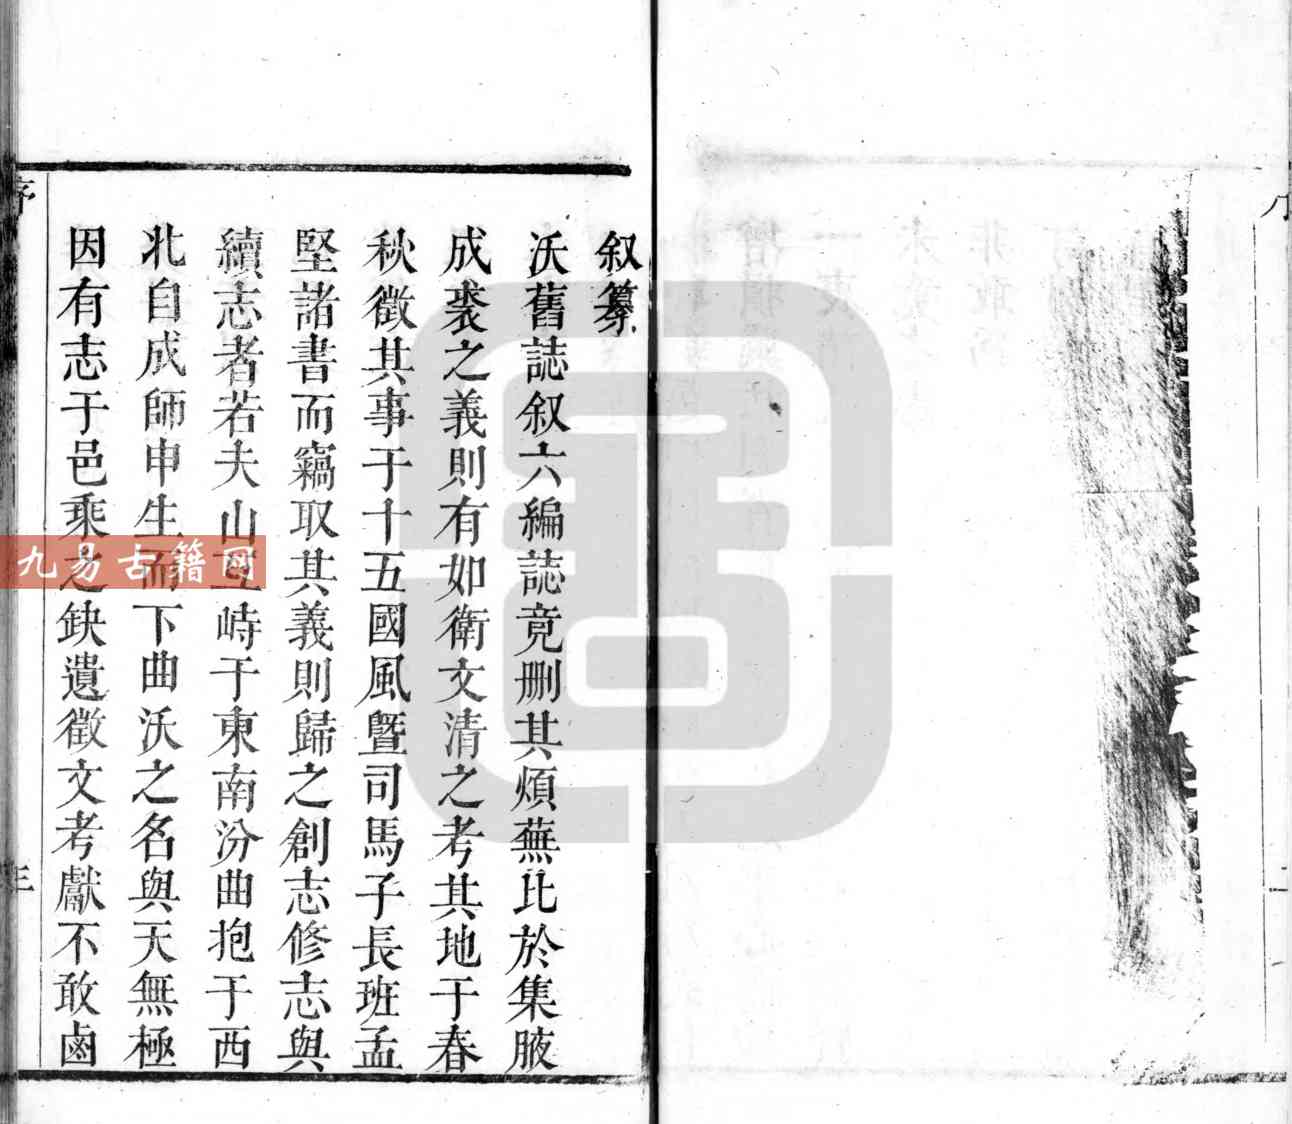 叙纂
沃舊誌叙六編誌竟刪其煩蕪比於集腋
成裘之義則有如衛文清之考其地于春
秋徵其事于十五國風曁司馬子長班孟
堅諸書而竊取其義則歸之創志修志與
續志者若夫山互峙于東南汾曲抱于西
北自成師申生而下曲沃之名與天無極
因有志于邑乘之缺遺徵文考獻不敢鹵
序
三
九易古籍网